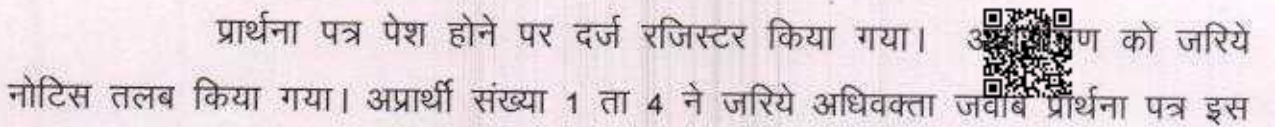 प्रार्थना पत्र पेश होने पर दर्ज रजिस्टर किया गया। को जरिये
नोटिस तलब किया गया। अप्रार्थी संख्या 1 ता 4 ने जरिये अधिवक्ता जवाब प्रार्थना पत्र इस